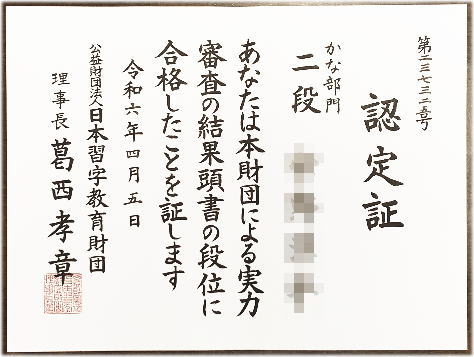 第二三七三二五号
認定証
かな部門
二段
あなたは本財団による実力
審査の結果頭書の段位に
合格したことを証します
令和六年四月五日
公益財団法人日本習字教育財団
理事長 葛西孝章